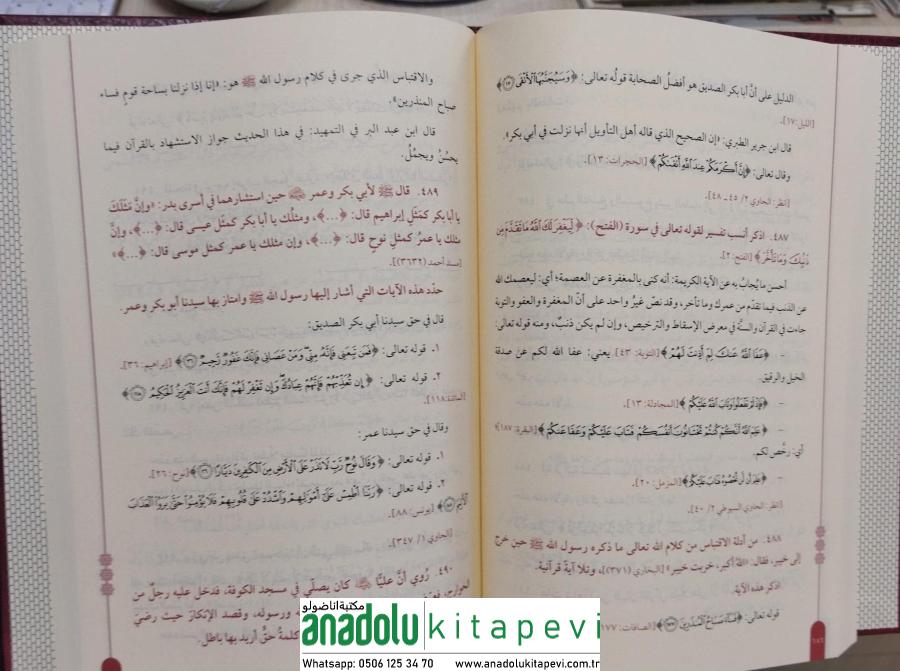 الدليل على أنَّ أبا بكر الصديق هو أفضلُ الصحابة قولُه تعالى: ﴿وَسَيُجَنَّبُهَا ٱلْأَتْقَى﴾
[الليل: ١٧].
قال ابن جرير الطبري: «إن الصحيح الذي قاله أهل التأويل أنها نزلت في أبي بكر».
وقال تعالى: ﴿إِنَّ أَكْرَمَكُمْ عِندَ ٱللَّهِ أَتْقَىٰكُمْ﴾ [الحجرات: ١٣].
[انظر: الحاوي ٢/ ٤٥ ـ ٤٨].
٤٨٧. اذكر أنسب تفسير لقوله تعالى في سورة (الفتح): ﴿لِّيَغْفِرَ لَكَ ٱللَّهُ مَا تَقَدَّمَ مِن
ذَنۢبِكَ وَمَا تَأَخَّرَ﴾ [الفتح: ٢].
أحسن ما يُجابُ به عن الآية الكريمة: أنه كنى بالمغفرة عن العصمة؛ أي: ليعصمك الله
عن الذنب فيما تقدّم من عمرك وما تأخر، وقد نصّ غيرُ واحد على أنّ المغفرة والعفو والتوبة
جاءت في القرآن والسنَّة في معرض الإسقاط والترخيص، وإن لم يكن ذنبٌ، ومنه قوله تعالى:
– ﴿عَفَا ٱللَّهُ عَنكَ لِمَ أَذِنتَ لَهُمْ﴾ [التوبة: ٤٣]. يعني: عفا الله لكم عن صدقة
الخيل والرقيق.
– ﴿فَإِذْ لَمْ تَفْعَلُوا۟ وَتَابَ ٱللَّهُ عَلَيْكُمْ﴾ [المجادلة: ١٣].
– ﴿عَلِمَ ٱللَّهُ أَنَّكُمْ كُنتُمْ تَخْتَانُونَ أَنفُسَكُمْ فَتَابَ عَلَيْكُمْ وَعَفَا عَنكُمْ﴾ [البقرة: ١٨٧]؛
أي: رخَّص لكم.
– ﴿عَلِمَ أَن لَّن تُحْصُوهُ فَتَابَ عَلَيْكُمْ﴾ [المزمل: ٢٠].
[انظر: الحاوي السيوطي ٢/ ٤٠].
٤٨٨. من أدلة الاقتباس من كلام الله تعالى ما ذكره رسول الله ﷺ حين خرج
إلى خيبر، فقال: «اللهُ أكبر، خربت خيبر» [البخاري (٣٧١)]، وتلا آيةً قرآنية.
اذكر هذه الآية.
قوله تعالى: ﴿فَسَآءَ صَبَاحُ ٱلْمُنذَرِينَ﴾ [الصافات: ١٧٧]
١٨٦
والاقتباس الذي جرى في كلام رسول الله ﷺ هو: «إنا إذا نزلنا بساحة قومٍ فساء
صباح المنذرين».
قال ابن عبد البر في التمهيد: في هذا الحديث جواز الاستشهاد بالقرآن فيما
يحسُنُ ويجملُ.
٤٨٩. قال ﷺ لأبي بكر وعمر حين استشارهما في أسرى بدر: «وإنَّ مَثَلَك
يا أبا بكر كمَثَلِ إبراهيم قال: ﴿...﴾، ومثلُك يا أبا بكر كمثَل عيسى قال: ﴿...﴾، وإنَّ
مثلك يا عمرُ كمثلِ نوحٍ قال: ﴿...﴾، وإن مثلك يا عمر كمثل موسى قال: ﴿...﴾»
[مسند أحمد (٣٦٣٢)].
حدّد هذه الآيات التي أشار إليها رسول الله ﷺ وامتاز بها سيدنا أبو بكر وعمر.
قال في حق سيدنا أبي بكر الصديق:
١. قوله تعالى: ﴿فَمَن تَبِعَنِى فَإِنَّهُۥ مِنِّى وَمَنْ عَصَانِى فَإِنَّكَ غَفُورٌ رَّحِيمٌ﴾ [إبراهيم: ٣٦].
٢. قوله تعالى: ﴿إِن تُعَذِّبْهُمْ فَإِنَّهُمْ عِبَادُكَ وَإِن تَغْفِرْ لَهُمْ فَإِنَّكَ أَنتَ ٱلْعَزِيزُ ٱلْحَكِيمُ﴾
[المائدة: ١١٨].
وقال في حق سيدنا عمر:
١. قوله تعالى: ﴿وَقَالَ نُوحٌ رَّبِّ لَا تَذَرْ عَلَى ٱلْأَرْضِ مِنَ ٱلْكَٰفِرِينَ دَيَّارًا﴾ [نوح: ٢٦].
٢. قوله تعالى: ﴿رَبَّنَا ٱطْمِسْ عَلَىٰٓ أَمْوَٰلِهِمْ وَٱشْدُدْ عَلَىٰ قُلُوبِهِمْ فَلَا يُؤْمِنُوا۟ حَتَّىٰ يَرَوُا۟ ٱلْعَذَابَ
ٱلْأَلِيمَ﴾ [يونس: ٨٨].
[الحاوي ١/ ٣٤٧].
٤٩٠. رُوي أنَّ عليًّا كان يصلّي في مسجد الكوفة، فدخل عليه رجلٌ من
الخوارج، ورسوله، وقصد الإنكارَ حيث رضيَ
كلمةُ حقٍّ أريد بها باطل.
مكتبة اناضولو
anadolu kitapevi
Whatsapp: 0506 125 34 70 www.anadolukitapevi.com.tr